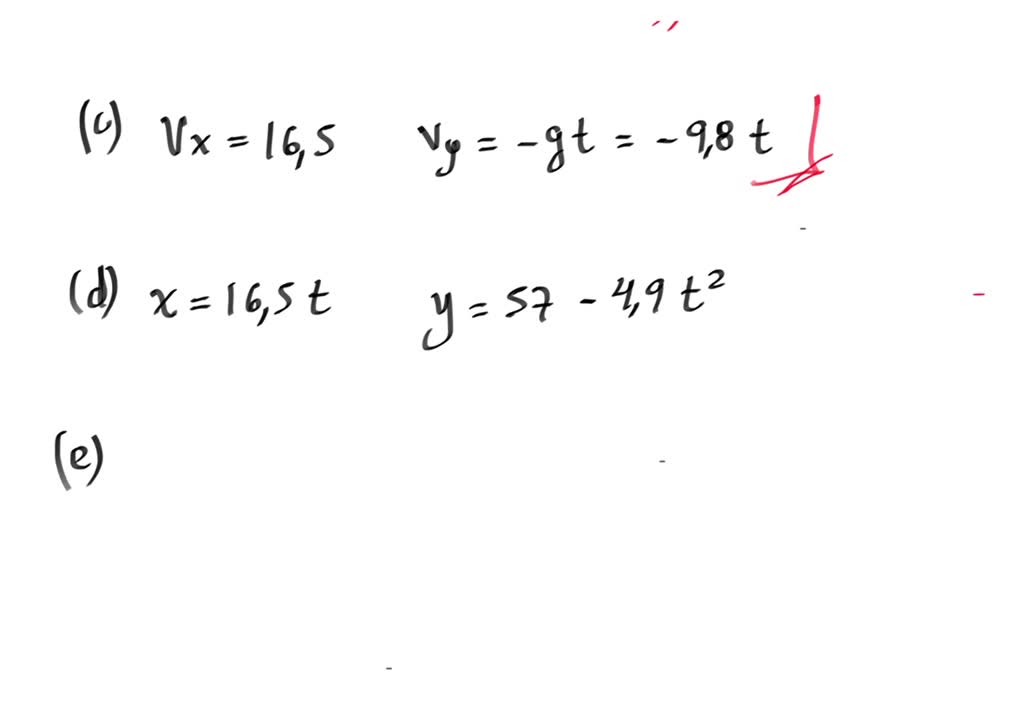 (c) Vx = 16,5 vy = -gt = -9,8 t
(d) x = 16,5 t y = 57 - 4,9 t²
(e)